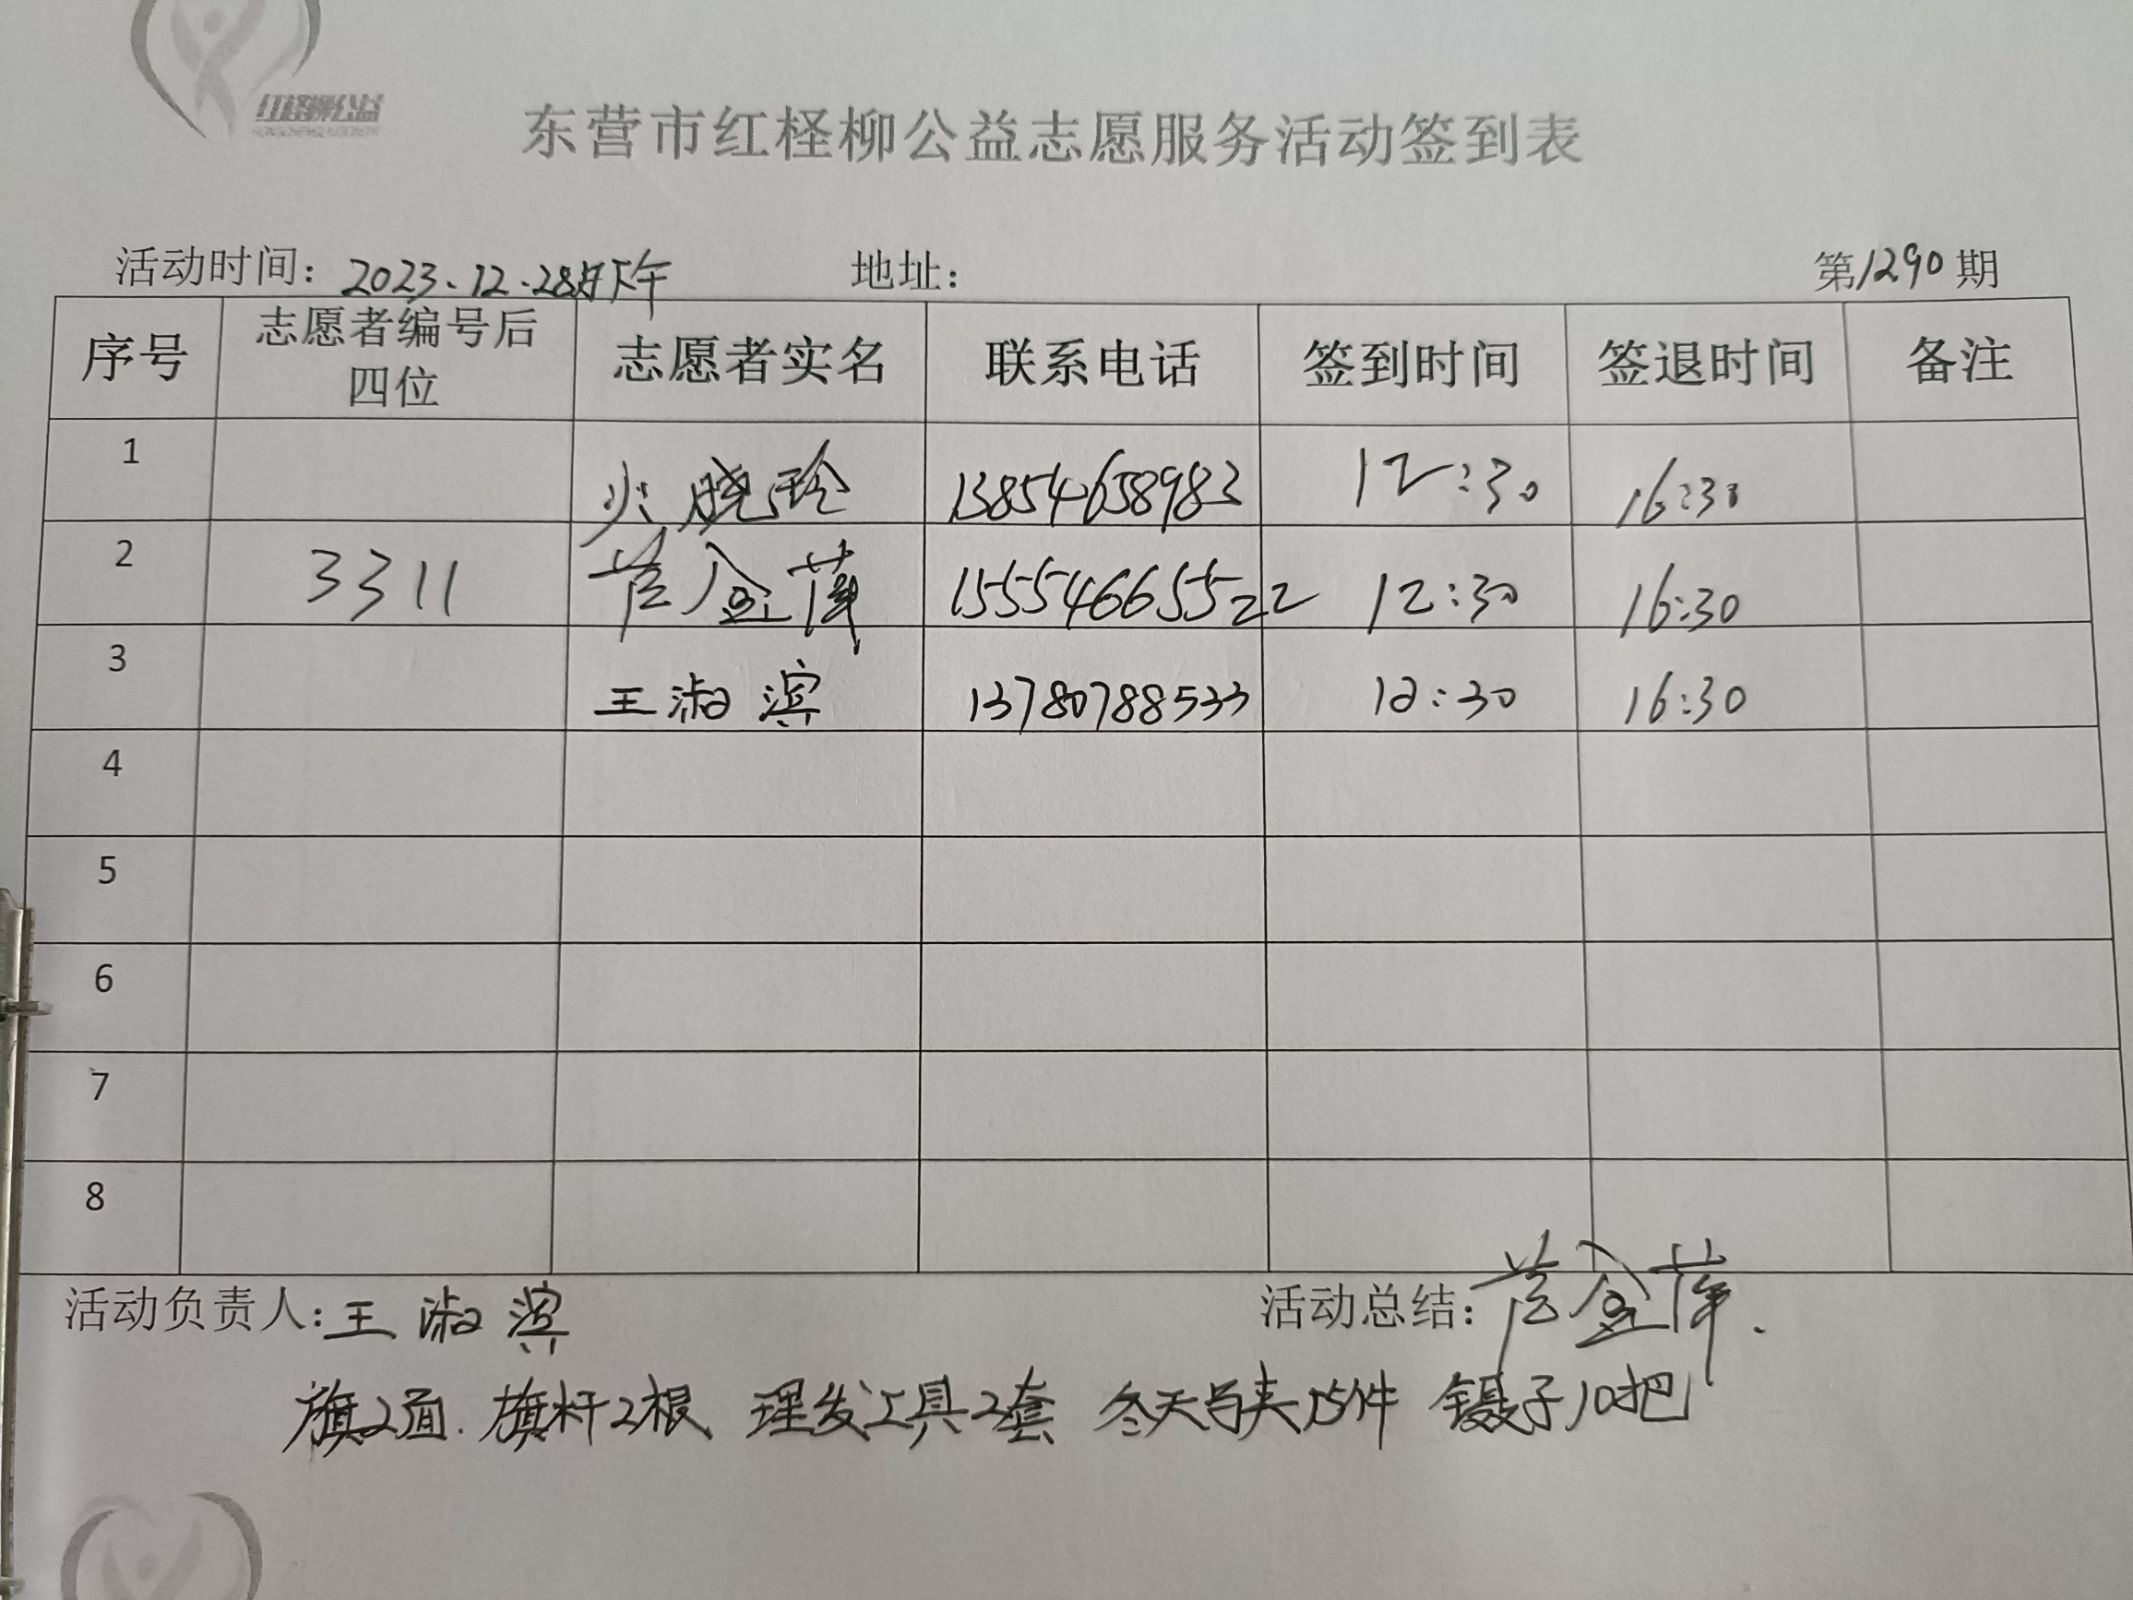 红柽柳公益
东营市红柽柳公益志愿服务活动签到表
活动时间：2023.12.28日下午 地址： 第1290期
序号 志愿者编号后四位 志愿者实名 联系电话 签到时间 签退时间 备注
1 晓玲 13854658983 12:30 16:30
2 3311 金萍 15554665522 12:30 16:30
3 王淑滨 13780788533 12:30 16:30
4
5
6
7
8
活动负责人：王淑滨 活动总结：金萍.
旗2面.旗杆2根 理发工具2套 冬天马夹15件 镊子10把